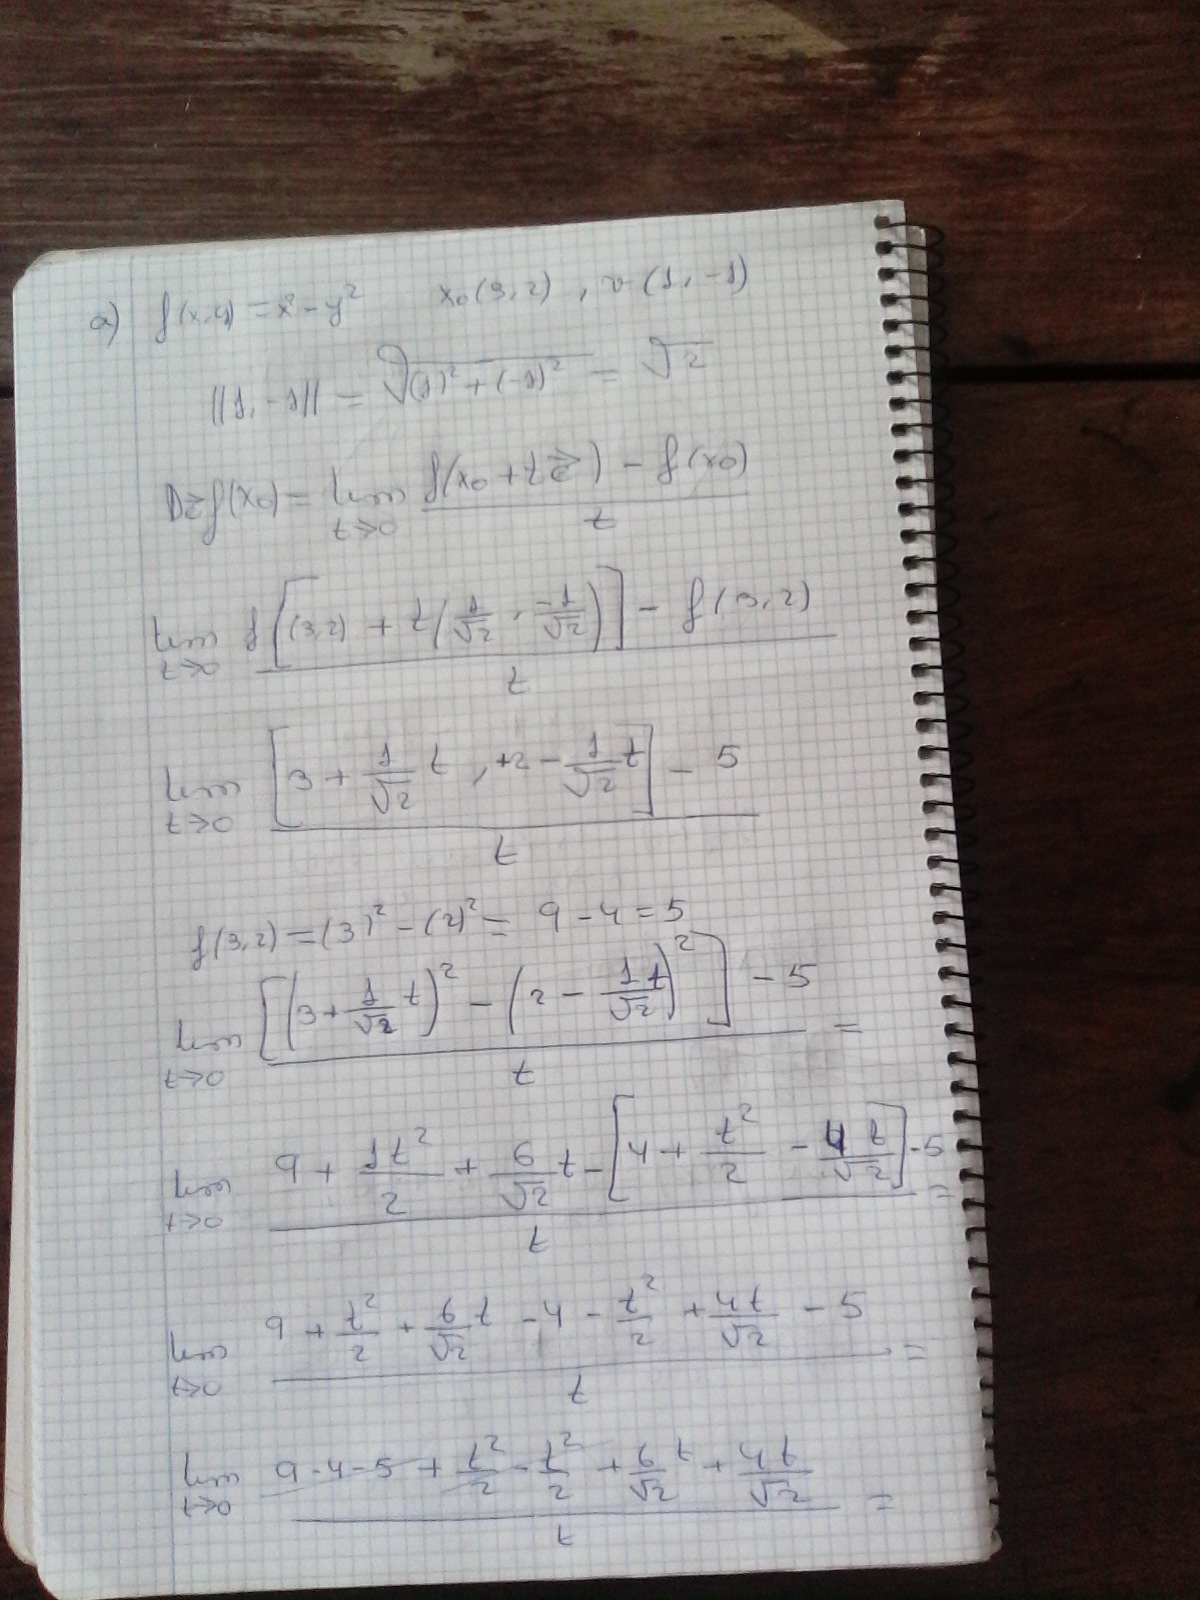 a) f(x,y) = x² - y² x₀(3,2) , v(1,-1)
||1,-1|| = √((1)² + (-1)²) = √2
De⃗f(x₀) = lim t→0 (f(x₀ + te⃗) - f(x₀)) / t
lim t→0 (f[(3,2) + t(1/√2 , -1/√2)] - f(3,2)) / t
lim t→0 ([3 + 1/√2 t , +2 - 1/√2 t] - 5) / t
f(3,2) = (3)² - (2)² = 9 - 4 = 5
lim t→0 ([(3 + 1/√2 t)² - (2 - 1t/√2)²] - 5) / t =
lim t→0 (9 + 1t²/2 + 6/√2 t - [4 + t²/2 - 4t/√2] - 5) / t =
lim t→0 (9 + t²/2 + 6/√2 t - 4 - t²/2 + 4t/√2 - 5) / t =
lim t→0 (9 - 4 - 5 + t²/2 - t²/2 + 6/√2 t + 4t/√2) / t =